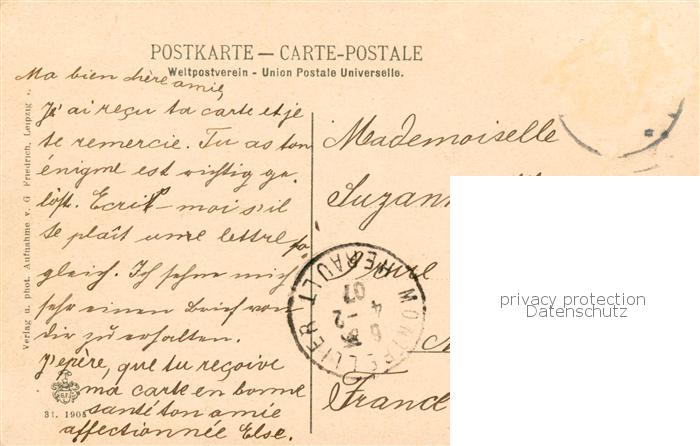 POSTKARTE — CARTE-POSTALE
Weltpostverein - Union Postale Universelle.
Ma bien chère amie,
J'ai reçu ta carte et je
te remercie. Tu as ton
énigme est richtig ge-
löst. Ecris-moi s'il
te plaît une lettre so-
gleich. Ich sehne mich
sehr einen Brief von
dir zu erhalten.
J'epère, que tu reçoive
ma carte en bonne
santé ton amie
affectionnée Else.
Mademoiselle
Suzann
France
MONTPELLIER HERAULT
6
4 -2
07
Verlag u. phot. Aufnahme v. G. Friedrich, Leipzig
31. 1905
privacy protection
Datenschutz